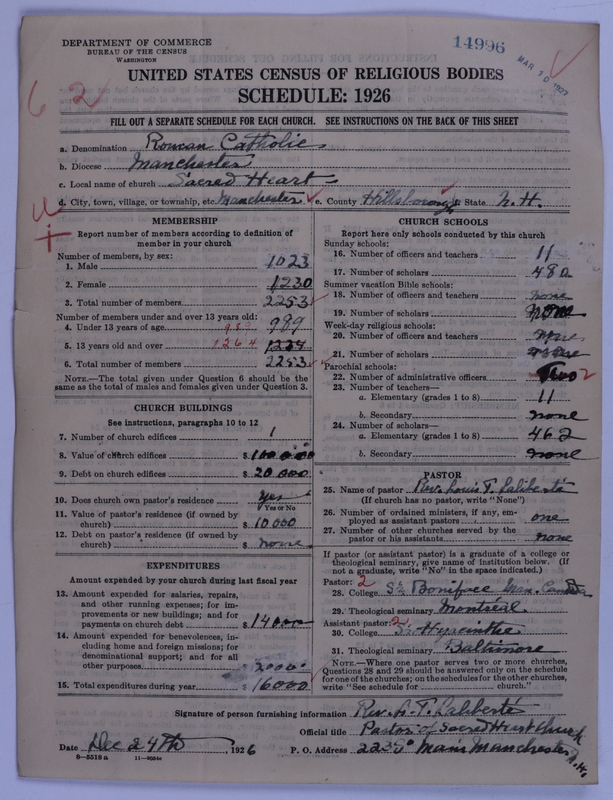 DEPARTMENT OF COMMERCE
BUREAU OF THE CENSUS
WASHINGTON
14996
MAR 10 1927
62
UNITED STATES CENSUS OF RELIGIOUS BODIES
SCHEDULE: 1926
FILL OUT A SEPARATE SCHEDULE FOR EACH CHURCH. SEE INSTRUCTIONS ON THE BACK OF THIS SHEET
a. Denomination Roman Catholic
b. Diocese Manchester
c. Local name of church Sacred Heart
d. City, town, village, or township, etc. Manchester e. County Hillsborough State N.H.
MEMBERSHIP
Report number of members according to definition of member in your church
Number of members, by sex:
1. Male 1023
2. Female 1230
3. Total number of members 2253
Number of members under and over 13 years old:
4. Under 13 years of age 989 989
5. 13 years old and over 1264
6. Total number of members 2253
NOTE.—The total given under Question 6 should be the
same as the total of males and females given under Question 3.
CHURCH BUILDINGS
See instructions, paragraphs 10 to 12
7. Number of church edifices 1
8. Value of church edifices $100000
9. Debt on church edifices $20000
10. Does church own pastor's residence yes
Yes or No
11. Value of pastor's residence (if owned by
church) $10000
12. Debt on pastor's residence (if owned by
church) $none
EXPENDITURES
Amount expended by your church during last fiscal year
13. Amount expended for salaries, repairs,
and other running expenses; for im-
provements or new buildings; and for
payments on church debt $14000
14. Amount expended for benevolences, in-
cluding home and foreign missions; for
denominational support; and for all
other purposes $2000
15. Total expenditures during year $16000
CHURCH SCHOOLS
Report here only schools conducted by this church
Sunday schools:
16. Number of officers and teachers 11
17. Number of scholars 480
Summer vacation Bible schools:
18. Number of officers and teachers none
19. Number of scholars none
Week-day religious schools:
20. Number of officers and teachers none
21. Number of scholars none
Parochial schools:
22. Number of administrative officers Two 2
23. Number of teachers—
a. Elementary (grades 1 to 8) 11
b. Secondary none
24. Number of scholars—
a. Elementary (grades 1 to 8) 462
b. Secondary none
PASTOR
25. Name of pastor Rev. Louis T. Laliberté
(If church has no pastor, write "None")
26. Number of ordained ministers, if any, em-
ployed as assistant pastors one
27. Number of other churches served by the
pastor or his assistants none
If pastor (or assistant pastor) is a graduate of a college or
theological seminary, give name of institution below. (If
not a graduate, write "No" in the space indicated.)
Pastor: 2
28. College St Boniface Man. Canada
29. Theological seminary Montréal
Assistant pastor: 2
30. College St Hyacinthe
31. Theological seminary Baltimore
NOTE.—Where one pastor serves two or more churches,
Questions 28 and 29 should be answered only on the schedule
for one of the churches; on the schedules for the other churches,
write "See schedule for church."
Signature of person furnishing information Rev. L. T. Laliberté
Official title Pastor of Sacred Heart Church
Date Dec 24th, 1926 P. O. Address Main Manchester N.H.
8—5518 a